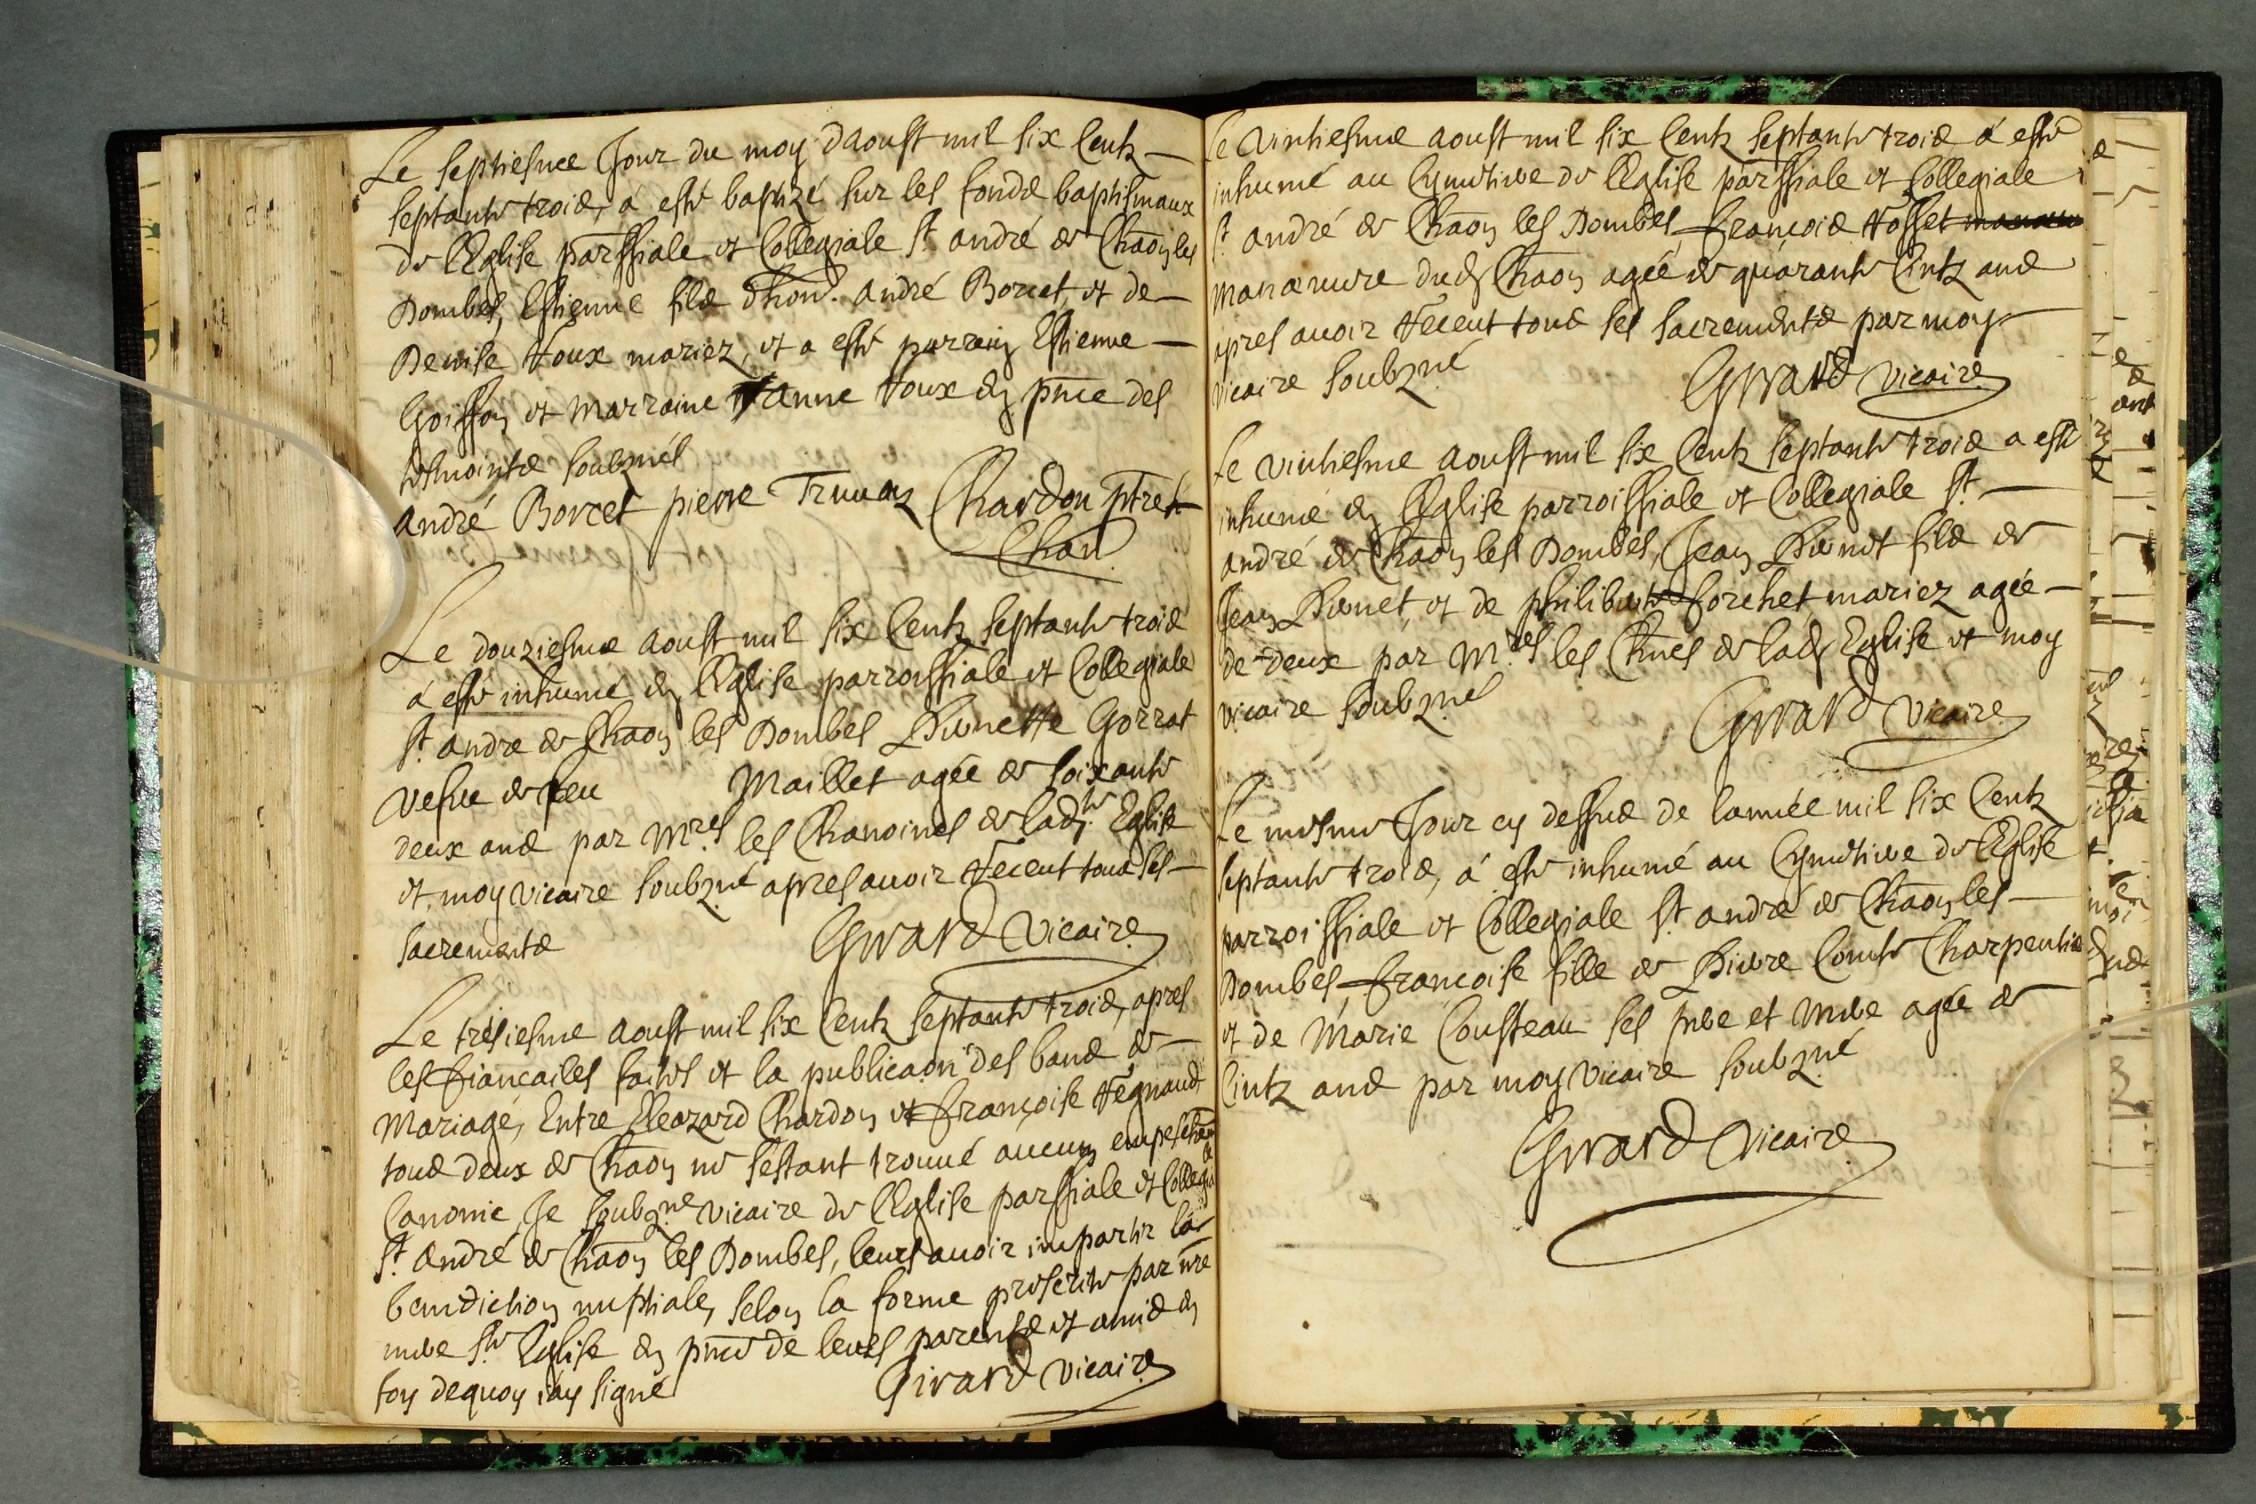 Le septiesme Jour du moy daoust mil six Centz
septante trois, á esté baptizé sur les fonds baptismaux
de l'Eglise parssiale et Collegiale St. andré de Chaon les
Dombes, Estienne fils dhon. André Borcet, et de
Denise Roux mariez, et a esté parrain Estienne
Goisson et Marraine anne Roux en pnce des
tesmointz soubznés
andré Borcet pierre Chardon ptre
Chan.
Le douziesme aoust mil six Centz septante trois
á esté inhumé en l'Eglise parroissiale et Collegiale
St. andre de Chaon les Dombes Pierrette Gorrat
vefue de feu Maillet agée de soixante
deux ans par Mres les Chanoines de ladte Eglise
et moy vicaire soubzné apres auoir Receut tous ses
sacrements Girard vicaire
Le tresiesme aoust mil six Centz septante trois, apres
les fiancailles faites et la publicaon des bans de
Mariage, Entre Eleazard Chardon et françoise Regnaud
tous deux de Chaon ne s'estant trouué aucun empescham
Canonic, Je soubzne vicaire de l'Eglise parssiale et Collegiale
St. andré de Chaon les Dombes, leurs auoir impartir la
benediction nuptiale, selon la forme prescrite par nre
mere Ste Eglise en pnce de leurs parents et amis en
foy dequoy iay signé Girard vicaire
Le vintiesme aoust mil six Centz septante trois á esté
inhumé au Cymetiere de l'Eglise parssiale et Collegiale
St. andré de Chaon les Dombes, françois Rosset
manœuure dud Chaon agée de quarante Cintz ans
apres auoir Receut tous ses sacrements par moy
vicaire soubzné Girard vicaire
Le vintiesme aoust mil six Centz septante trois a esté
inhumé en l'Eglise parroissiale et Collegiale St.
andré de Chaon les Dombes, Jean Pernet fils de
Jean Pernet, et de philiberte forchet mariez agée
de deux par Mres les Chnes de lad Eglise et moy
vicaire soubzné Girard vicaire
Le mesme Jour cy dessus de lannée mil six Centz
septante trois, á esté inhumé au Cymetiere de l'Eglise
parroissiale et Collegiale St. andré de Chaon les
Dombes, francoise fille de Pierre Comte Charpentier
et de Marie Cousteau ses pere et mere agée de
Cintz ans par moy vicaire soubzné
Girard vicaire